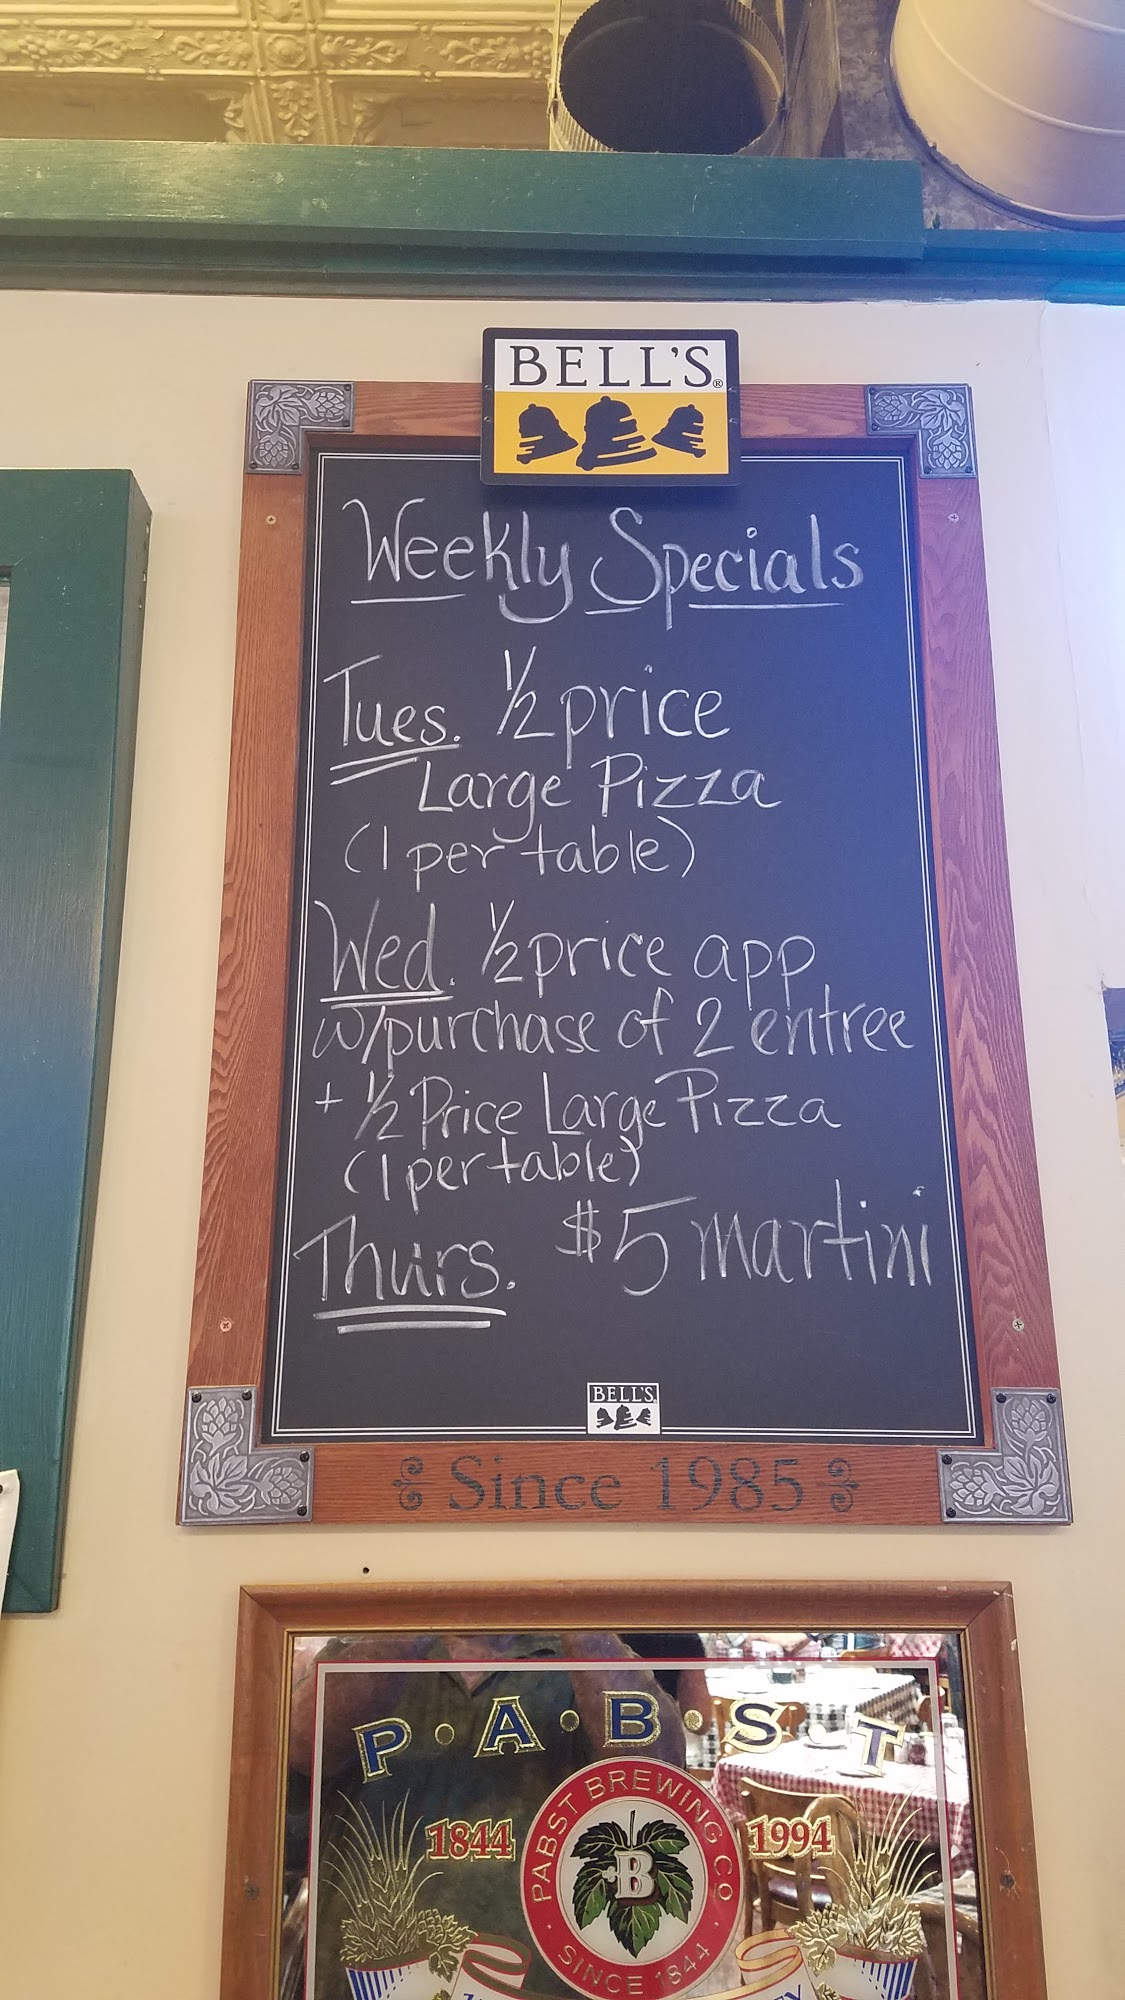 BELL'S®
Weekly Specials
Tues. 1/2 price
Large Pizza
(1 per table)
Wed. 1/2 price app
w/purchase of 2 entree
+ 1/2 Price Large Pizza
(1 per table)
Thurs. $5 martini
BELL'S
Since 1985
P·A·B·S·T
1844 1994
PABST BREWING CO
B
· SINCE 1844 ·